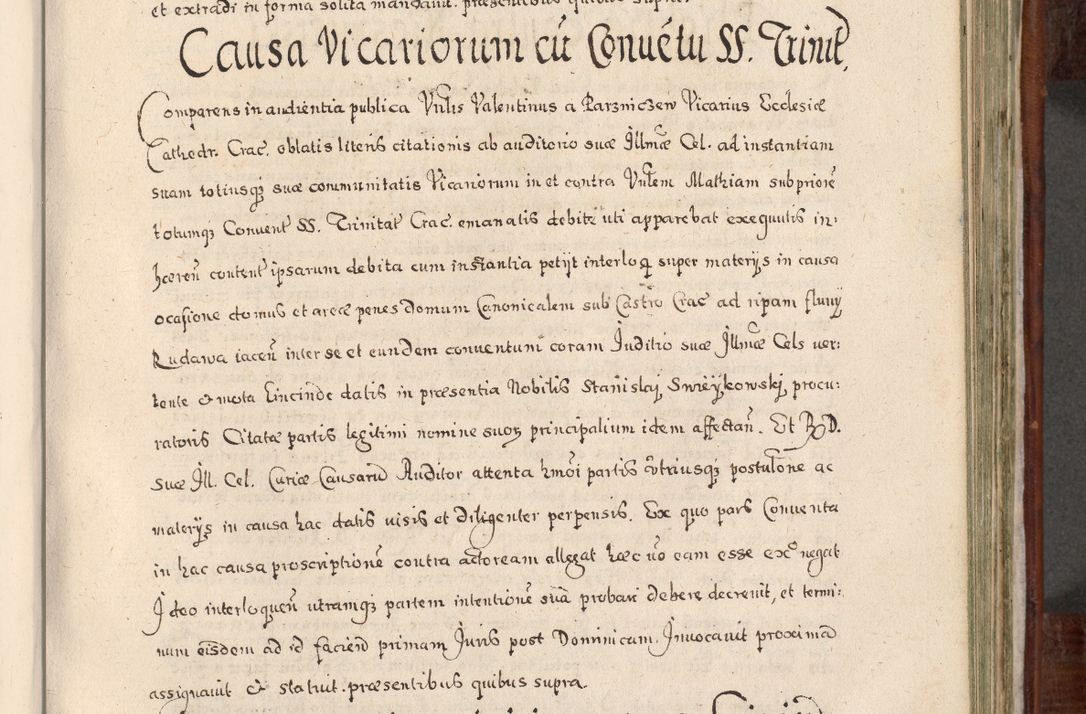 et extradi in forma solita mandavit. præsentibus quibus supra.
Causa Vicariorum cū Convētu SS. Trinit.
Comparens in audientia publica Vnlis Valentinus a Parzniczew Vicarius Ecclesiæ
Cathedr. Crac. oblatis literis citationis ab auditorio suæ Illmæ Cel. ad instantiam
suam totiusqȝ suæ communitatis Vicariorum in et contra Vnlem Mathiam subpriorē
totumqȝ Convent SS. Trinitat Crac. emanatis debite uti apparebat exequutis in:
hæren̄ content ipsarum debita cum instantia petijt interloq super materijs in causa
ocasione domus et areæ penes domum Canonicalem sub Castro Crac ad ripam fluvij
Rudawa iacen̄ inter se et eundem conventum coram Juditio suæ Illmæ Cels ver:
tente & mota Eincinde datis in præsentia Nobilis Stanislaj Swieykowskj procu:
ratoris Citatæ partis legitimi nomine suoꝝ principalium idem affectan̄. Et R D.
suæ Ill. Cel. Curiæ Causarū Auditor attenta hmōi partis vtriusqȝ postulōne ac
materijs in causa hac datis visis et diligenter perpensis. Ex quo pars Conventa
in hac causa proscriptionē contra actoream allegat hæc vō eam esse exº negat
Ideo interloquen̄ utramqȝ partem intentionē suā probari debere decrevit, et termi:
num eisdem ad id faciend primam Juris post Dominicam Invocavit proximā
assignavit & statuit. præsentibus quibus supra.